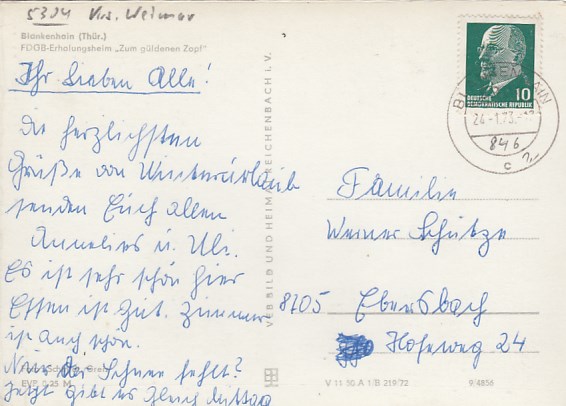 5304 Krs. Weimar
Blankenhain (Thür.)
FDGB-Erholungsheim „Zum güldenen Zopf"
Ihr Lieben Alle!
Die herzlichsten
Grüße vom Winterurlaub
senden Euch allen
Annelies u. Uli.
Es ist sehr schön hier
Essen ist gut. Zimmer
ist auch schön.
Nur der Schnee fehlt?
Jetzt gibt es gleich Mittag
EVP 0,25 M
VEB BILD UND HEIMAT REICHENBACH i. V.
10
DEUTSCHE
DEMOKRATISCHE REPUBLIK
24-1.73
c
846
Familie
Werner Schütze
8705 Ebersbach
Hofeweg 24
V 11 50 A 1/B 219/72 9/4856